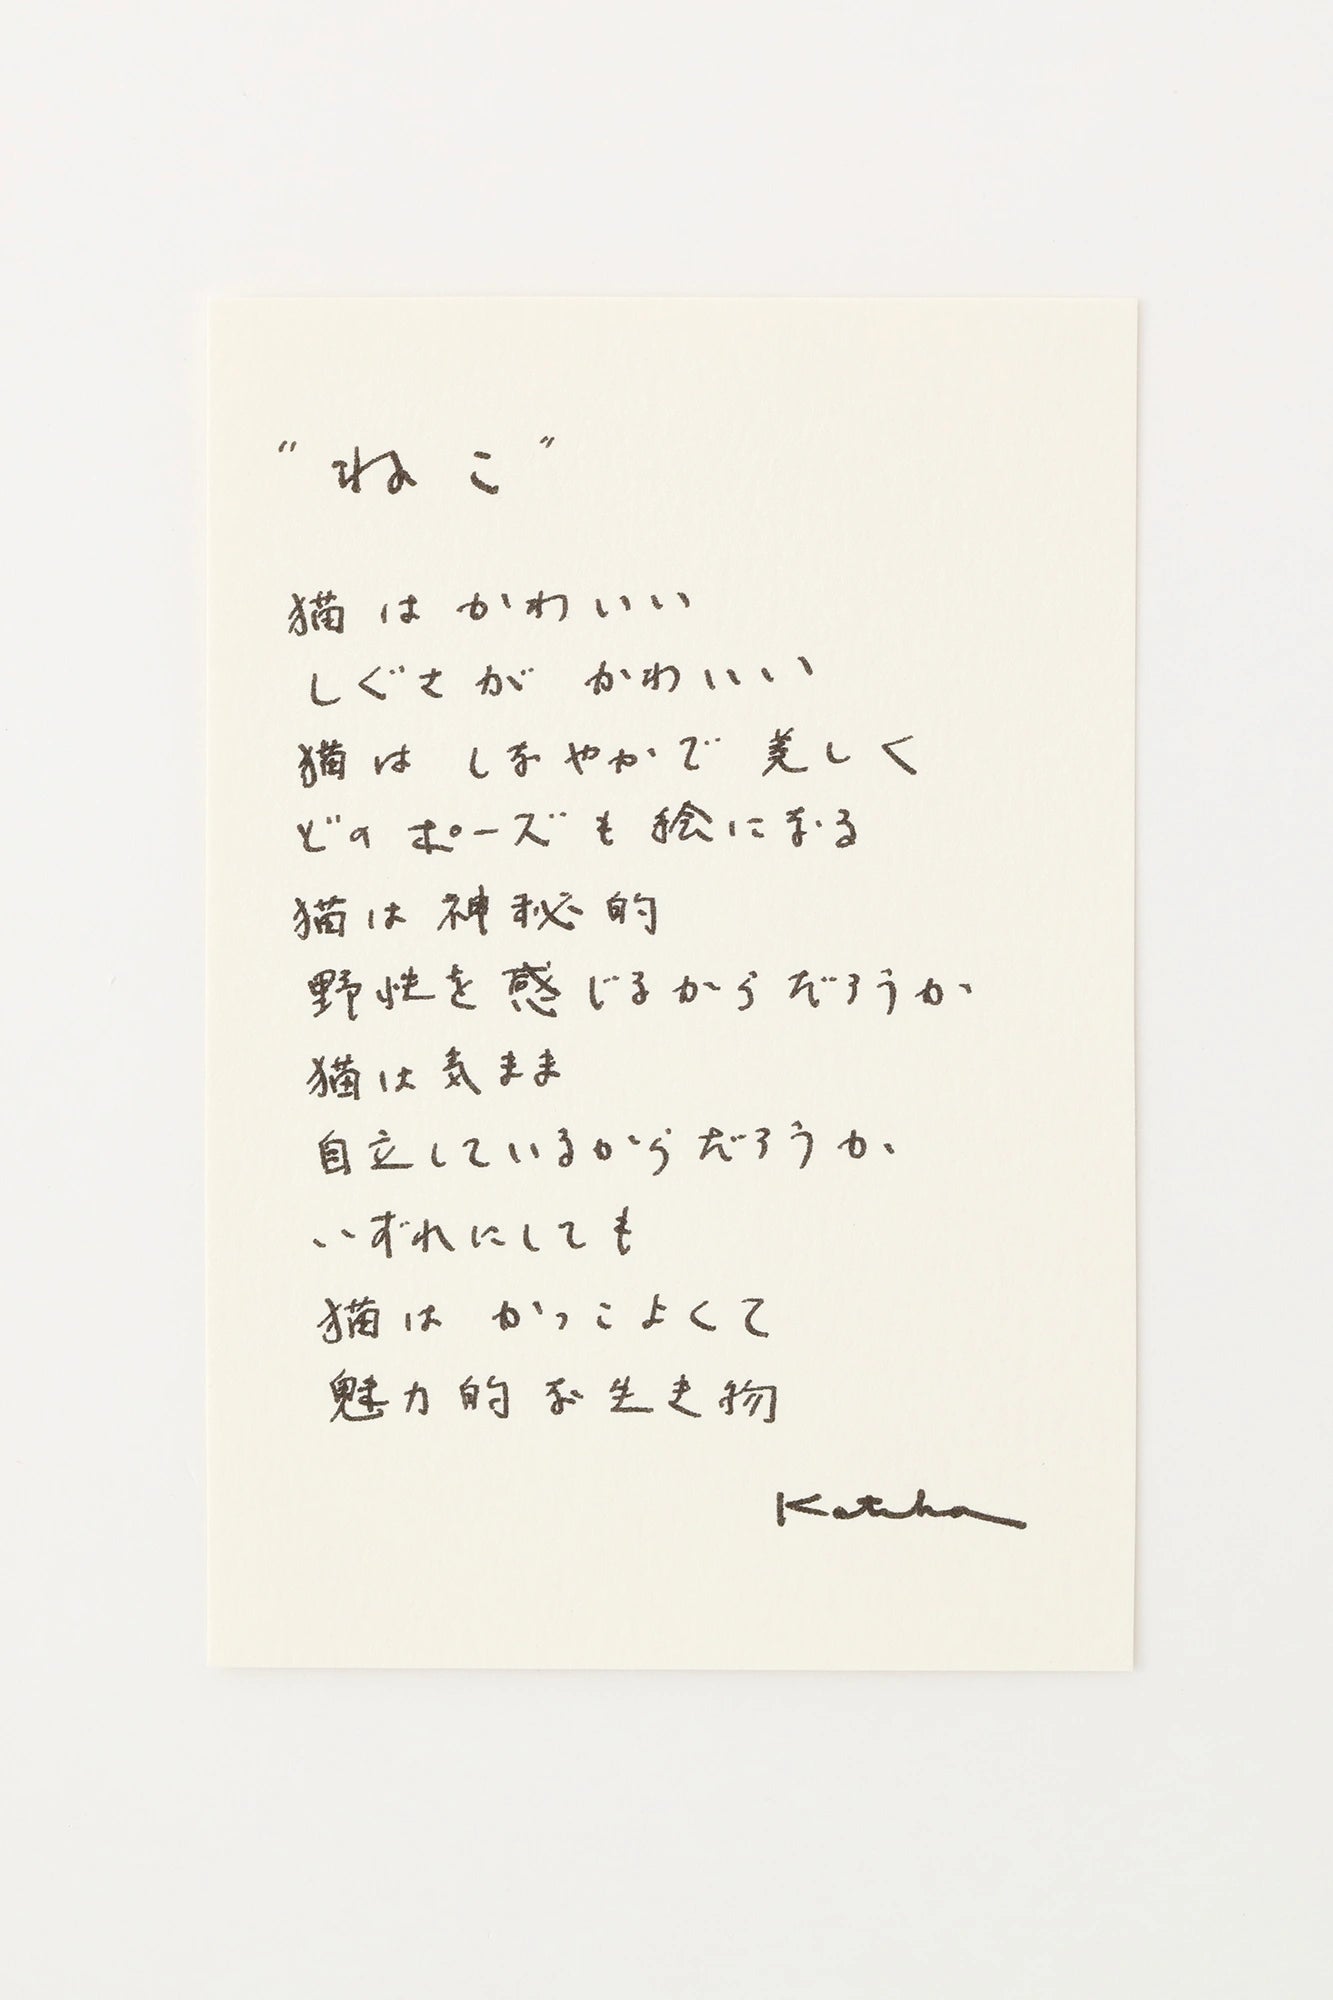 "ねこ"
猫はかわいい
しぐさが かわいい
猫は しなやかで 美しく
どのポーズも絵になる
猫は神秘的
野性を感じるからだろうか
猫は気まま
自立しているからだろうか
いずれにしても
猫は かっこよくて
魅力的な生き物
Katsha